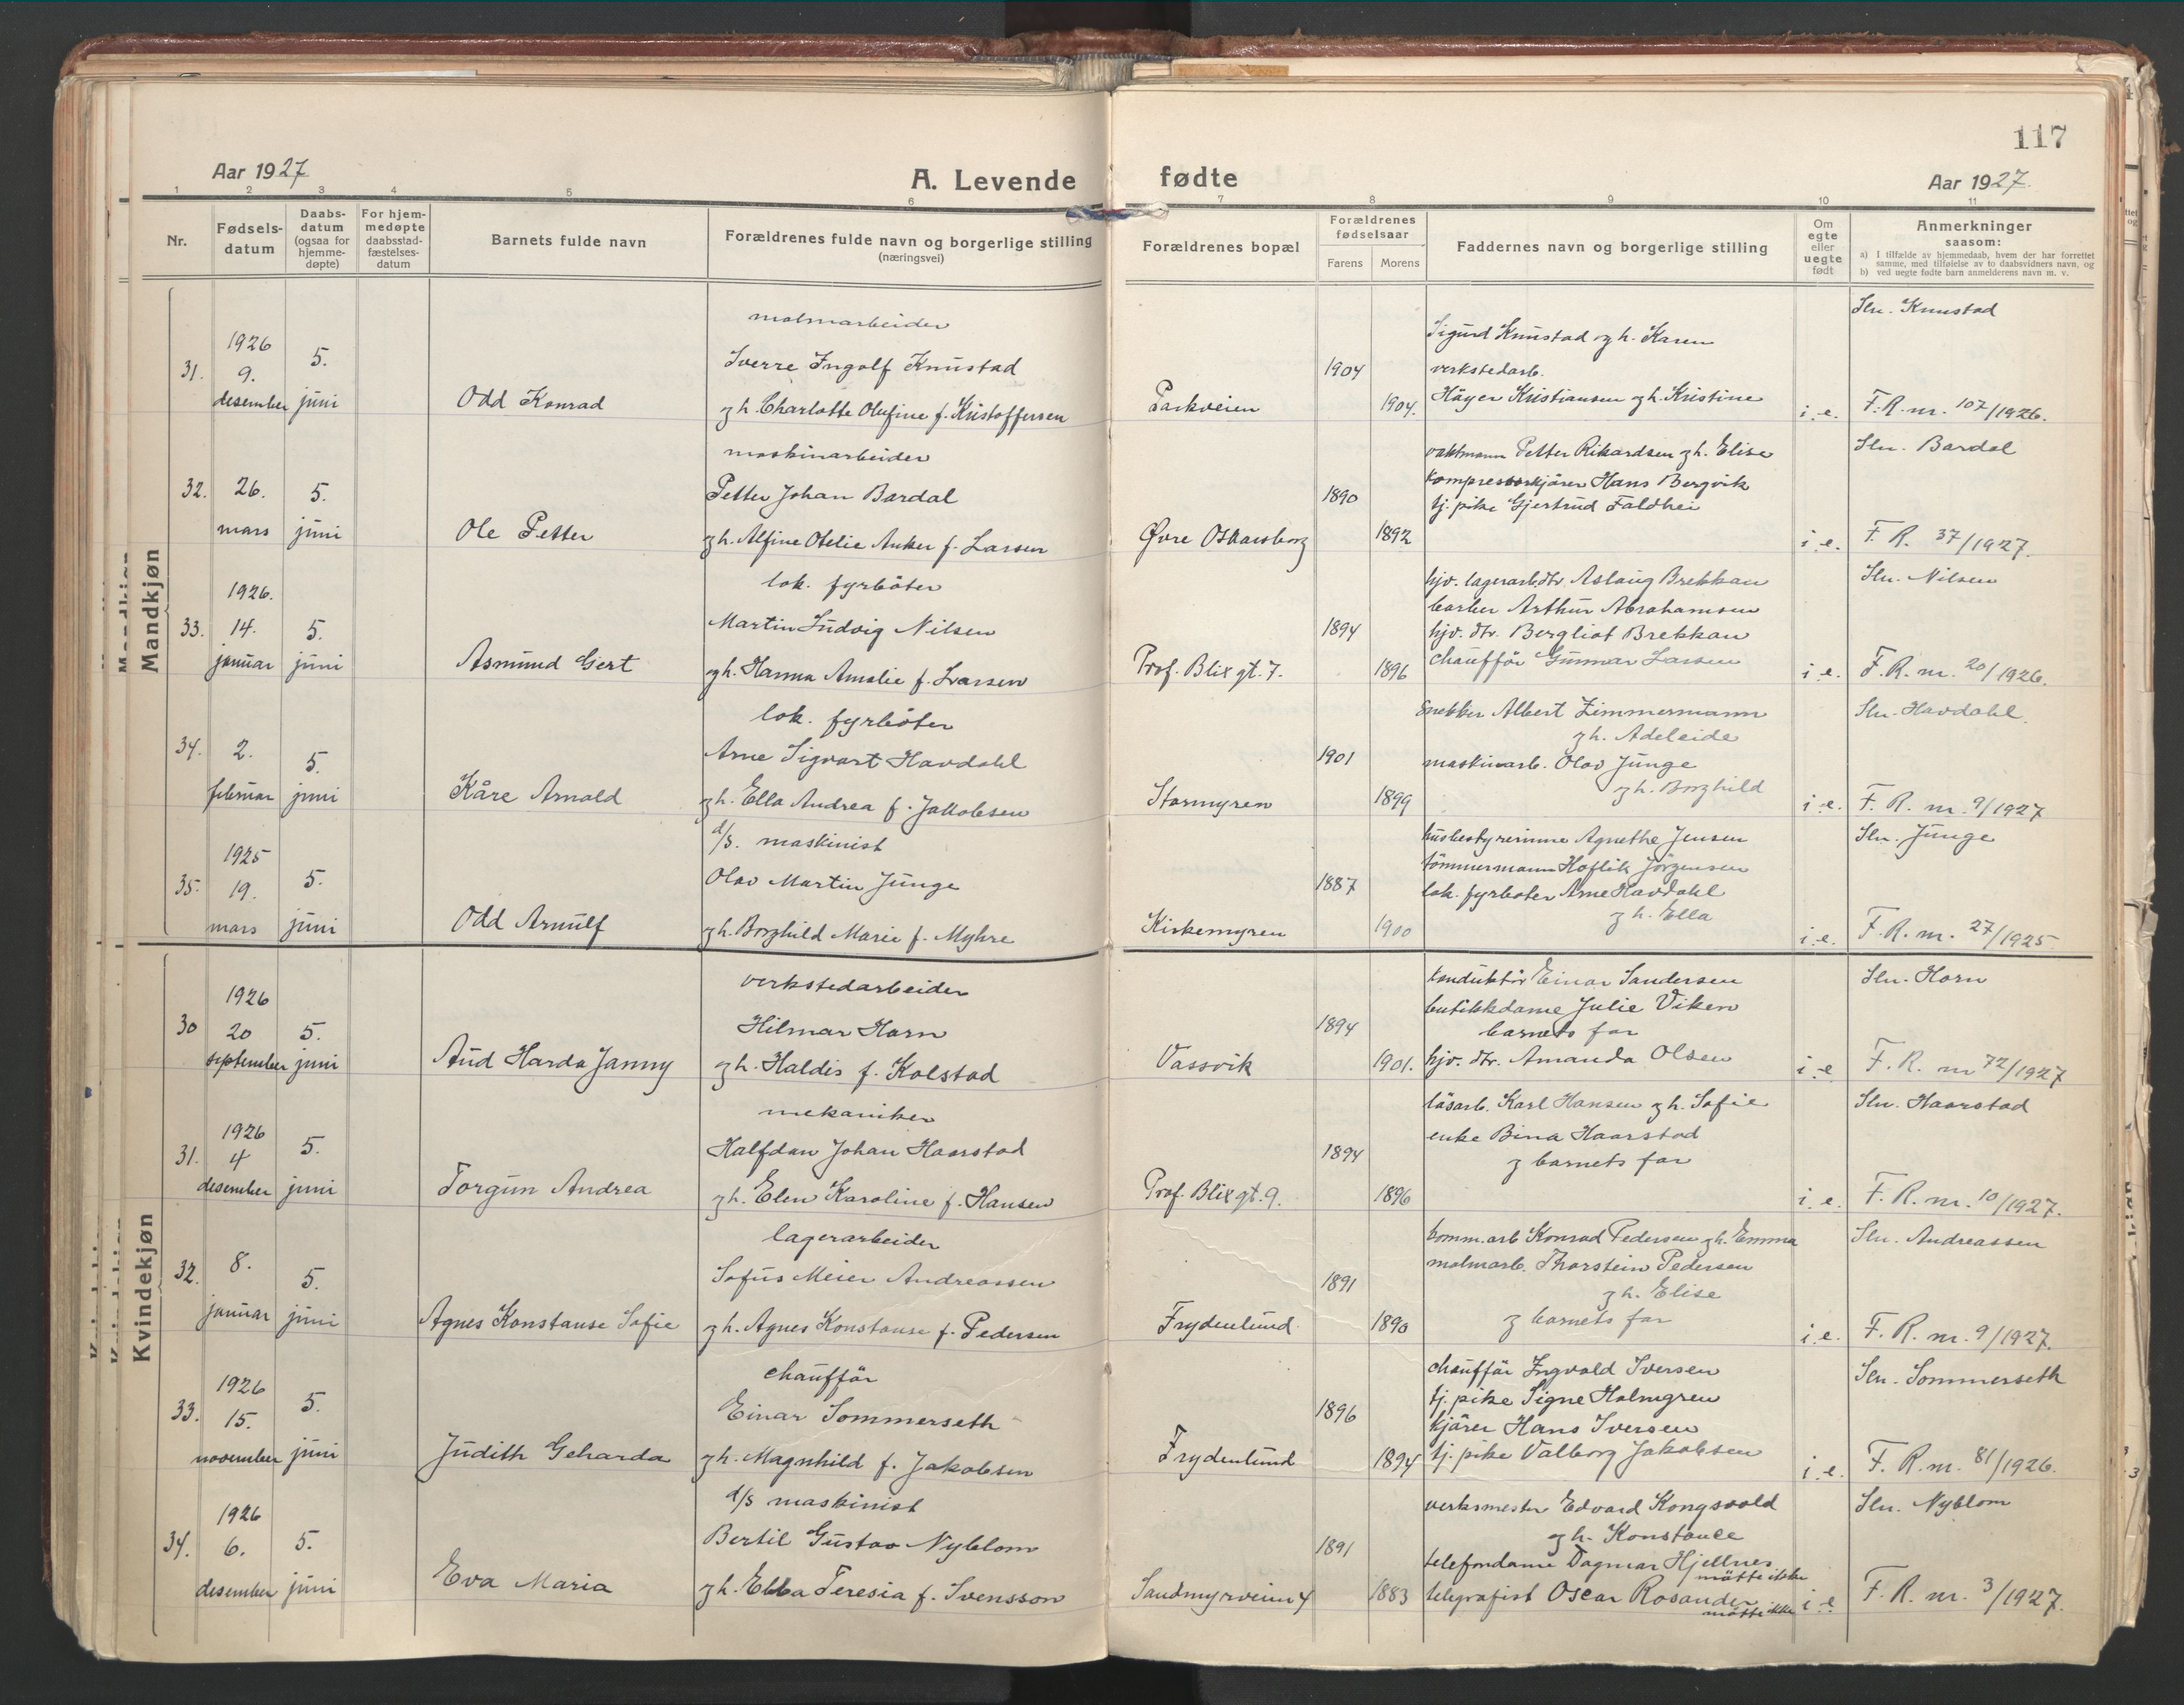 117
Aar 1927
A. Levende fødte
Aar 1927.
1 2 3 4 5 6 7 8 9 10 11
Nr.
Fødsels-
datum
Daabs-
datum
(ogsaa for
hjemme-
døpte)
For hjem-
medøpte
daabsstad-
fæstelses-
datum
Barnets fulde navn
Forældrenes fulde navn og borgerlige stilling
(næringsvei)
Forældrenes bopæl
Forældrenes
fødselsaar
Farens Morens
Faddernes navn og borgerlige stilling
Om
egte
eller
uegte
født
Anmerkninger
saasom:
a) I tilfælde av hjemmedaab, hvem der har forrettet
samme, med tilføielse av to daabsvidners navn, og
b) ved uegte fødte barn anmelderens navn m. v.
Mandkjøn
31.
1926
9.
desember
5.
juni
Odd Konrad
malmarbeider
Sverre Ingolf Knustad
gh. Charlotte Olufine f. Kristoffersen
Parkveien
1904
1904.
Sigurd Knustad og h. Karen
verkstedarb.
Häger Kristiansen og h. Kristine
i. e.
Sln. Knustad
F. R. nr. 107/1926.
32.
26.
mars
5.
juni
Ole Petter
maskinarbeider
Petter Johan Bardal
gh. Alfine Otelie Anker f. Larsen
Øvre Oskarsborg
1890
1892
vaktmann Petter Rikardsen gh. Elise
kompressorkjører Hans Bergvik
tj. pike Gjertrud Faldhei
i. e.
Sln. Bardal
F. R. 37/1927.
33.
1926.
14.
januar
5.
juni
Asmund Gert
lok. fyrböter
Martin Ludvig Nilsen
gh. Hanna Amalie f. Larsen
Prof. Blix gt. 7.
1894
1896
hjv. lagerarb.dtr. Aslaug Brekkan
barber Arthur Abrahamsen
hjv. dtr. Bergliot Brekkan
chauffør Gunnar Larsen
i. e.
Sln. Nilsen
F. R. nr. 20/1926.
34.
2.
februar
5.
juni
Kåre Arnold
lok. fyrböter
Arne Sigvart Havdahl
gh. Ella Andrea f. Jakobsen
Stormyren
1901
1899
snekker Albert Zimmermann
gh. Adeleide
maskinarb. Olav Junge
gh. Borghild
i. e.
Sln. Havdahl.
F. R. nr. 9/1927
35.
1925
19.
mars
5.
juni
Odd Arnulf
d/s. maskinist
Olav Martin Junge
gh. Borghild Marie f. Myhre
Kirkemyren
1887
1900
husbestyrerinne Agnethe Jensen
tömmermann Hoflik Jörgensen
lok. fyrboter Arne Havdahl
gh. Ella
i. e.
Sln. Junge
F. R. nr. 27/1925
Kvindekjøn
30
1926
20
september
5.
juni
Aud Harda Janny
verkstedarbeider
Hilmar Horn
gh. Haldis f. Kolstad
Vassvik
1894
1901.
konduktör Einar Sandersen
butikkdame Julie Viken
barnets far
hjv. dtr. Amanda Olsen
i. e
Sln. Horn
F. R. nr 72/1927
31.
1926
4
desember
5.
juni
Torgun Andrea
mekaniker
Halfdan Johan Haarstad
gh. Elen Karoline f. Hansen
Prof. Blix gt. 9.
1894
1896
läsarb. Karl Hansen gh. Sofie
enke Bina Haarstad
g barnets far
i. e.
Sln. Haarstad
F. R. nr. 10/1927.
32.
8.
januar
5.
juni
Agnes Konstanse Sofie
lagerarbeider
Sofus Meier Andreassen
gh. Agnes Konstanse f. Pedersen
Frydenlund.
1891
1890
komm.arb Konrad Pedersen gh. Emma
malmarb. Thorstein Pedersen
gh. Elise
g barnets far
i. e.
Sln. Andreassen
F. R. nr. 9/1927.
33.
1926
15.
november
5.
juni
Judith Geharda
chaufför
Einar Sommerseth
gh. Magnhild f. Jakobsen
Frydenlund
1896
1894
chauffär Ingvald Iversen
tj. pike Signe Holmgren
kjörer Hans Iversen
tj. pike Valborg Jakobsen
i. e.
Sln. Sommerseth
F. R. nr. 81/1926.
34.
1926
6.
desember
5.
juni
Eva Maria
d/s maskinist
Bertil Gustav Nyblom
gh. Ebba Teresia f. Svensson
Sandmyrveien 4
1891
1883
verksmester Edvard Kongsvold
gh. Konstance
telefondame Dagmar Hjellnes
mötte ikke
telegrafist Oscar Rosander
mötte ikke
i. e
Sln. Nyblom
F. R. nr. 3/1927.